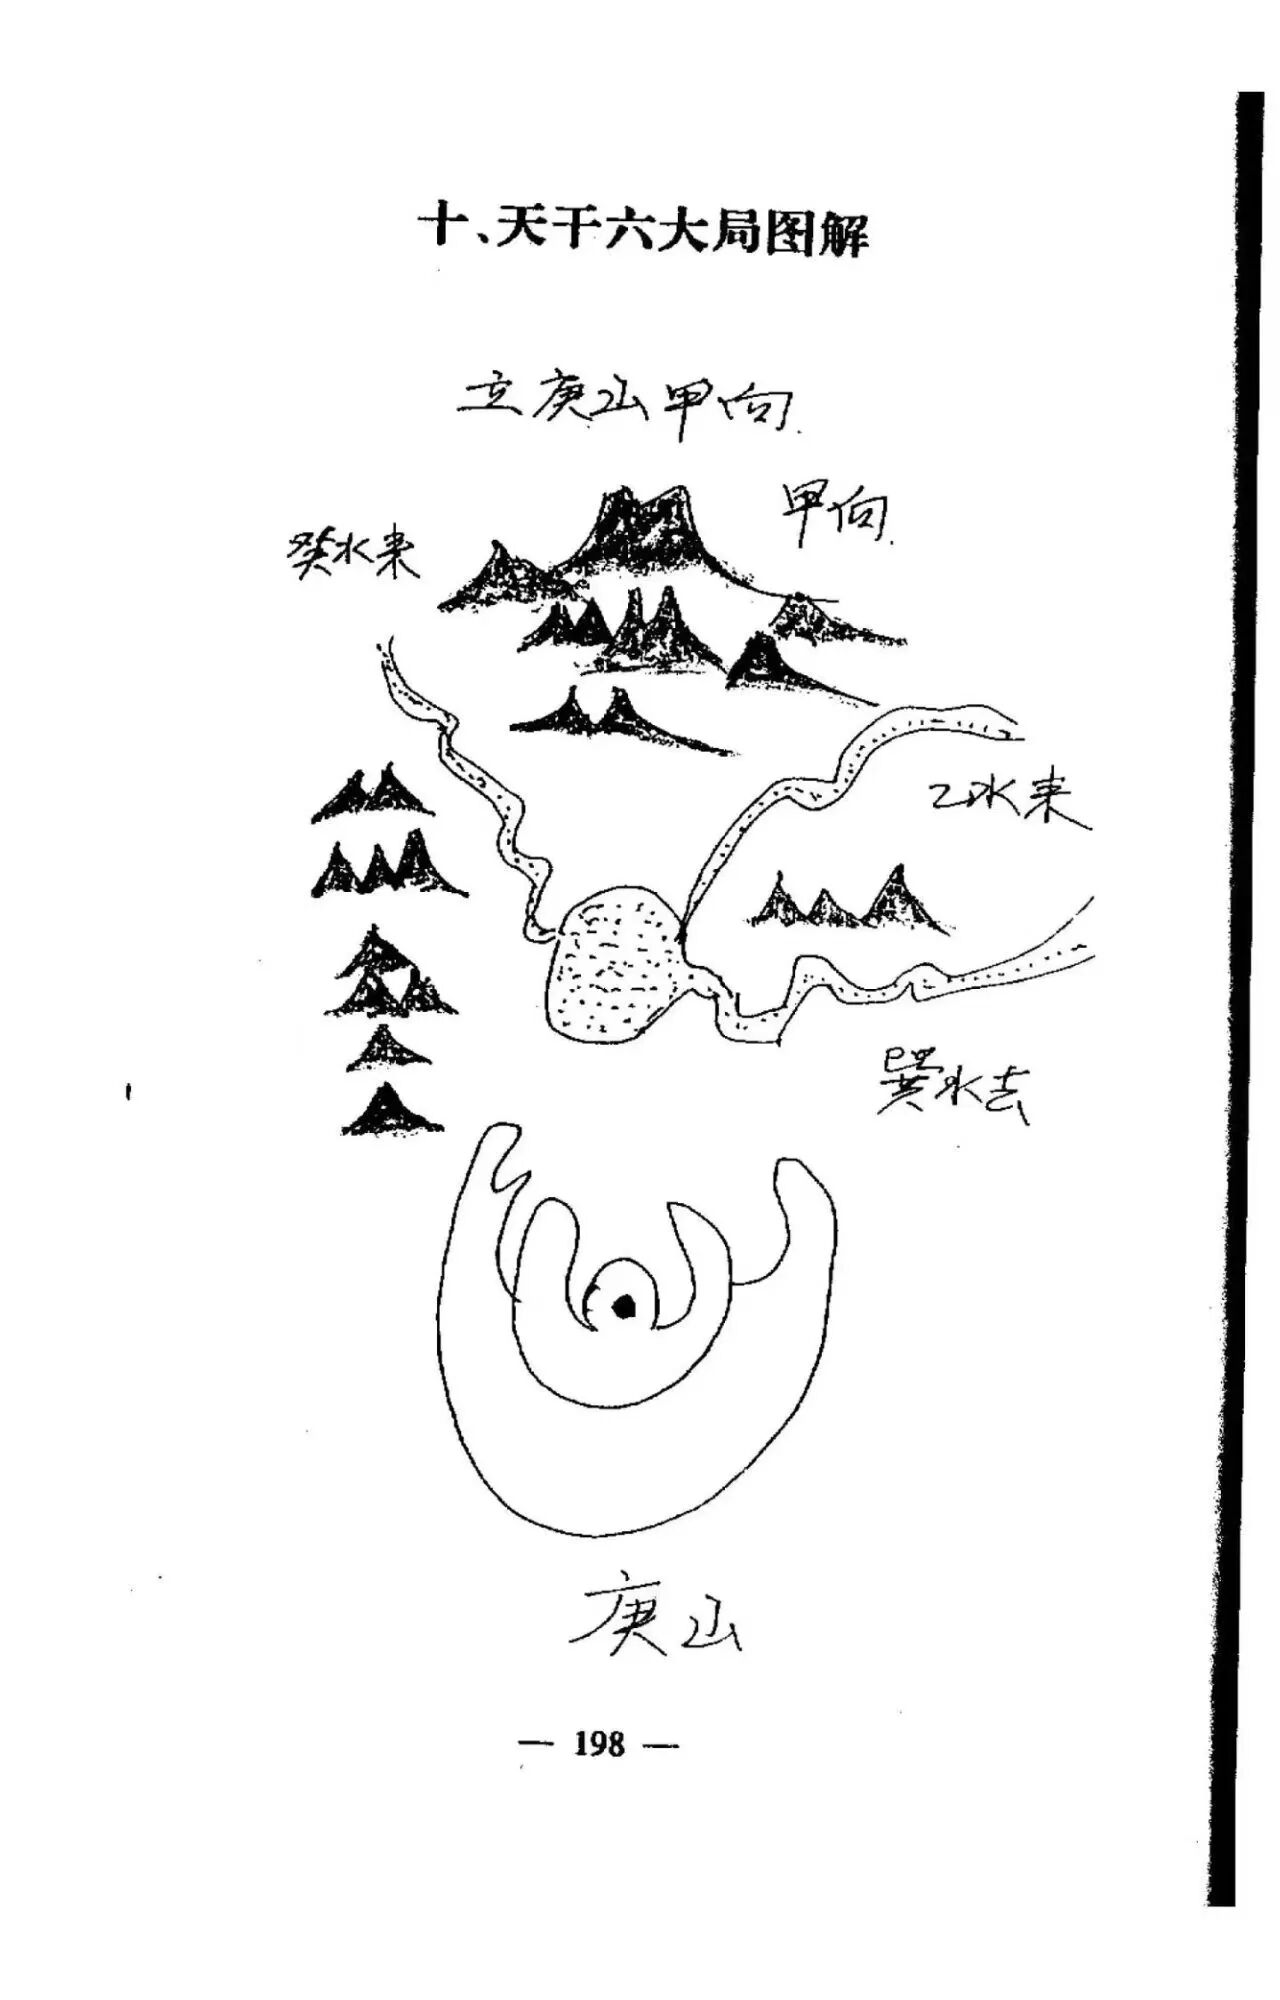 十、天干六大局图解
立庚山甲向.
甲向.
癸水来
乙水来
巽水去
庚山
— 198 —